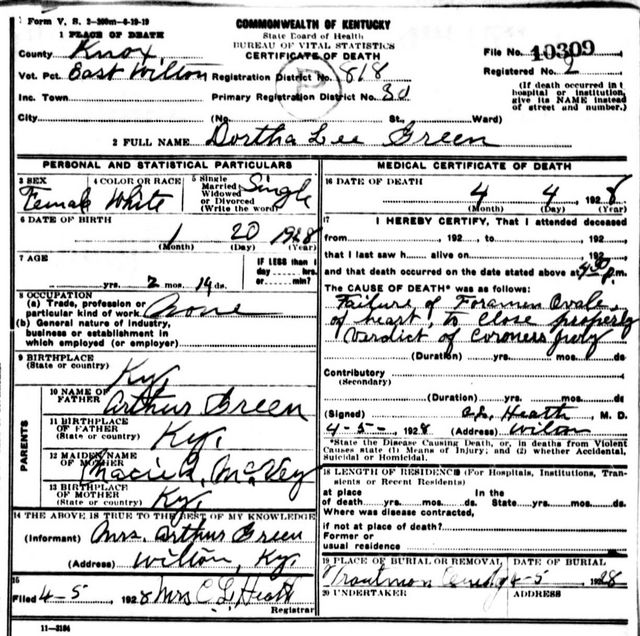 Form V. S. 2-200m-6-19-19
1 PLACE OF DEATH
COMMONWEALTH OF KENTUCKY
State Board of Health
BUREAU OF VITAL STATISTICS
CERTIFICATE OF DEATH
County Knox
File No. 10309
Vot. Pct. East Wilton Registration District No. 818
Registered No. 2
Inc. Town Primary Registration District No. 30
(If death occurred in a
hospital or institution,
give its NAME instead
of street and number.)
City (No. St., Ward)
2 FULL NAME Dortha Lee Green
PERSONAL AND STATISTICAL PARTICULARS
3 SEX Female
4 COLOR OR RACE White
5 Single
Married
Widowed
or Divorced
(Write the word) Single
6 DATE OF BIRTH
1 20 1928
(Month) (Day) (Year)
7 AGE
yrs. 2 mos. 14 ds.
IF LESS than 1
day hrs.
or min.?
8 OCCUPATION
(a) Trade, profession or
particular kind of work None
(b) General nature of industry,
business or establishment in
which employed (or employer)
9 BIRTHPLACE
(State or country) Ky.
PARENTS
10 NAME OF
FATHER Arthur Green
11 BIRTHPLACE
OF FATHER
(State or country) Ky.
12 MAIDEN NAME
OF MOTHER McVey
13 BIRTHPLACE
OF MOTHER
(State or country) Ky.
14 THE ABOVE IS TRUE TO THE BEST OF MY KNOWLEDGE
(Informant) Mrs. Arthur Green
(Address) Wilton, Ky.
15
Filed 4-5, 1928 Mrs C. L. Heath
Registrar
11-3184
MEDICAL CERTIFICATE OF DEATH
16 DATE OF DEATH
4 4 1928
(Month) (Day) (Year)
17 I HEREBY CERTIFY, That I attended deceased
from , 192 , to , 192 ,
that I last saw h alive on , 192 ,
and that death occurred on the date stated above at 4:30 p.m.
The CAUSE OF DEATH* was as follows:
Failure of Foramen Ovale
of heart, to close properly
Verdict of Coroners Jury
(Duration) yrs. mos. ds
Contributory
(Secondary)
(Duration) yrs. mos. ds
(Signed) C.L. Heath, M. D.
4-5-, 1928 (Address) Wilton
*State the Disease Causing Death, or, in deaths from Violent
Causes state (1) Means of Injury; and (2) whether Accidental,
Suicidal or Homicidal.
18 LENGTH OF RESIDENCE (For Hospitals, Institutions, Tran-
sients or Recent Residents)
at place In the
of death yrs. mos. ds. State yrs. mos. ds
Where was disease contracted,
if not at place of death?
Former or
usual residence
19 PLACE OF BURIAL OR REMOVAL DATE OF BURIAL
4-5 1928
20 UNDERTAKER ADDRESS